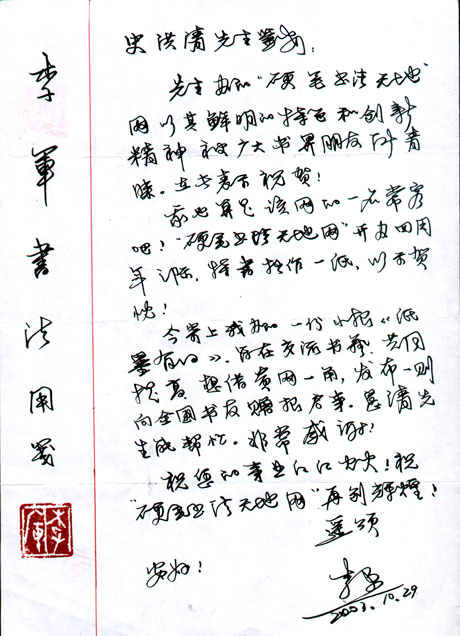 李军书法用笺
史洪清先生鉴安:
先生办的"硬毛书法天地"
网以其鲜明的特色和创新
精神被广大书界朋友所青
睐。在此表示祝贺!
我也算是该网的一名常客
吧!"硬毛书法天地网"开办四周
年之际,特书拙作一纸,以示贺
忱!
今寄上我办的一份小报《纸
墨有约》,旨在交流书艺、共同
提高,想借贵网一角,发布一则
向全国书友赠报启事。恳请先
生能帮忙。非常感谢!
祝您的事业红红火火!祝
"硬毛书法天地网"再创辉煌!
遥颂
安好!
李军
2003.10.29